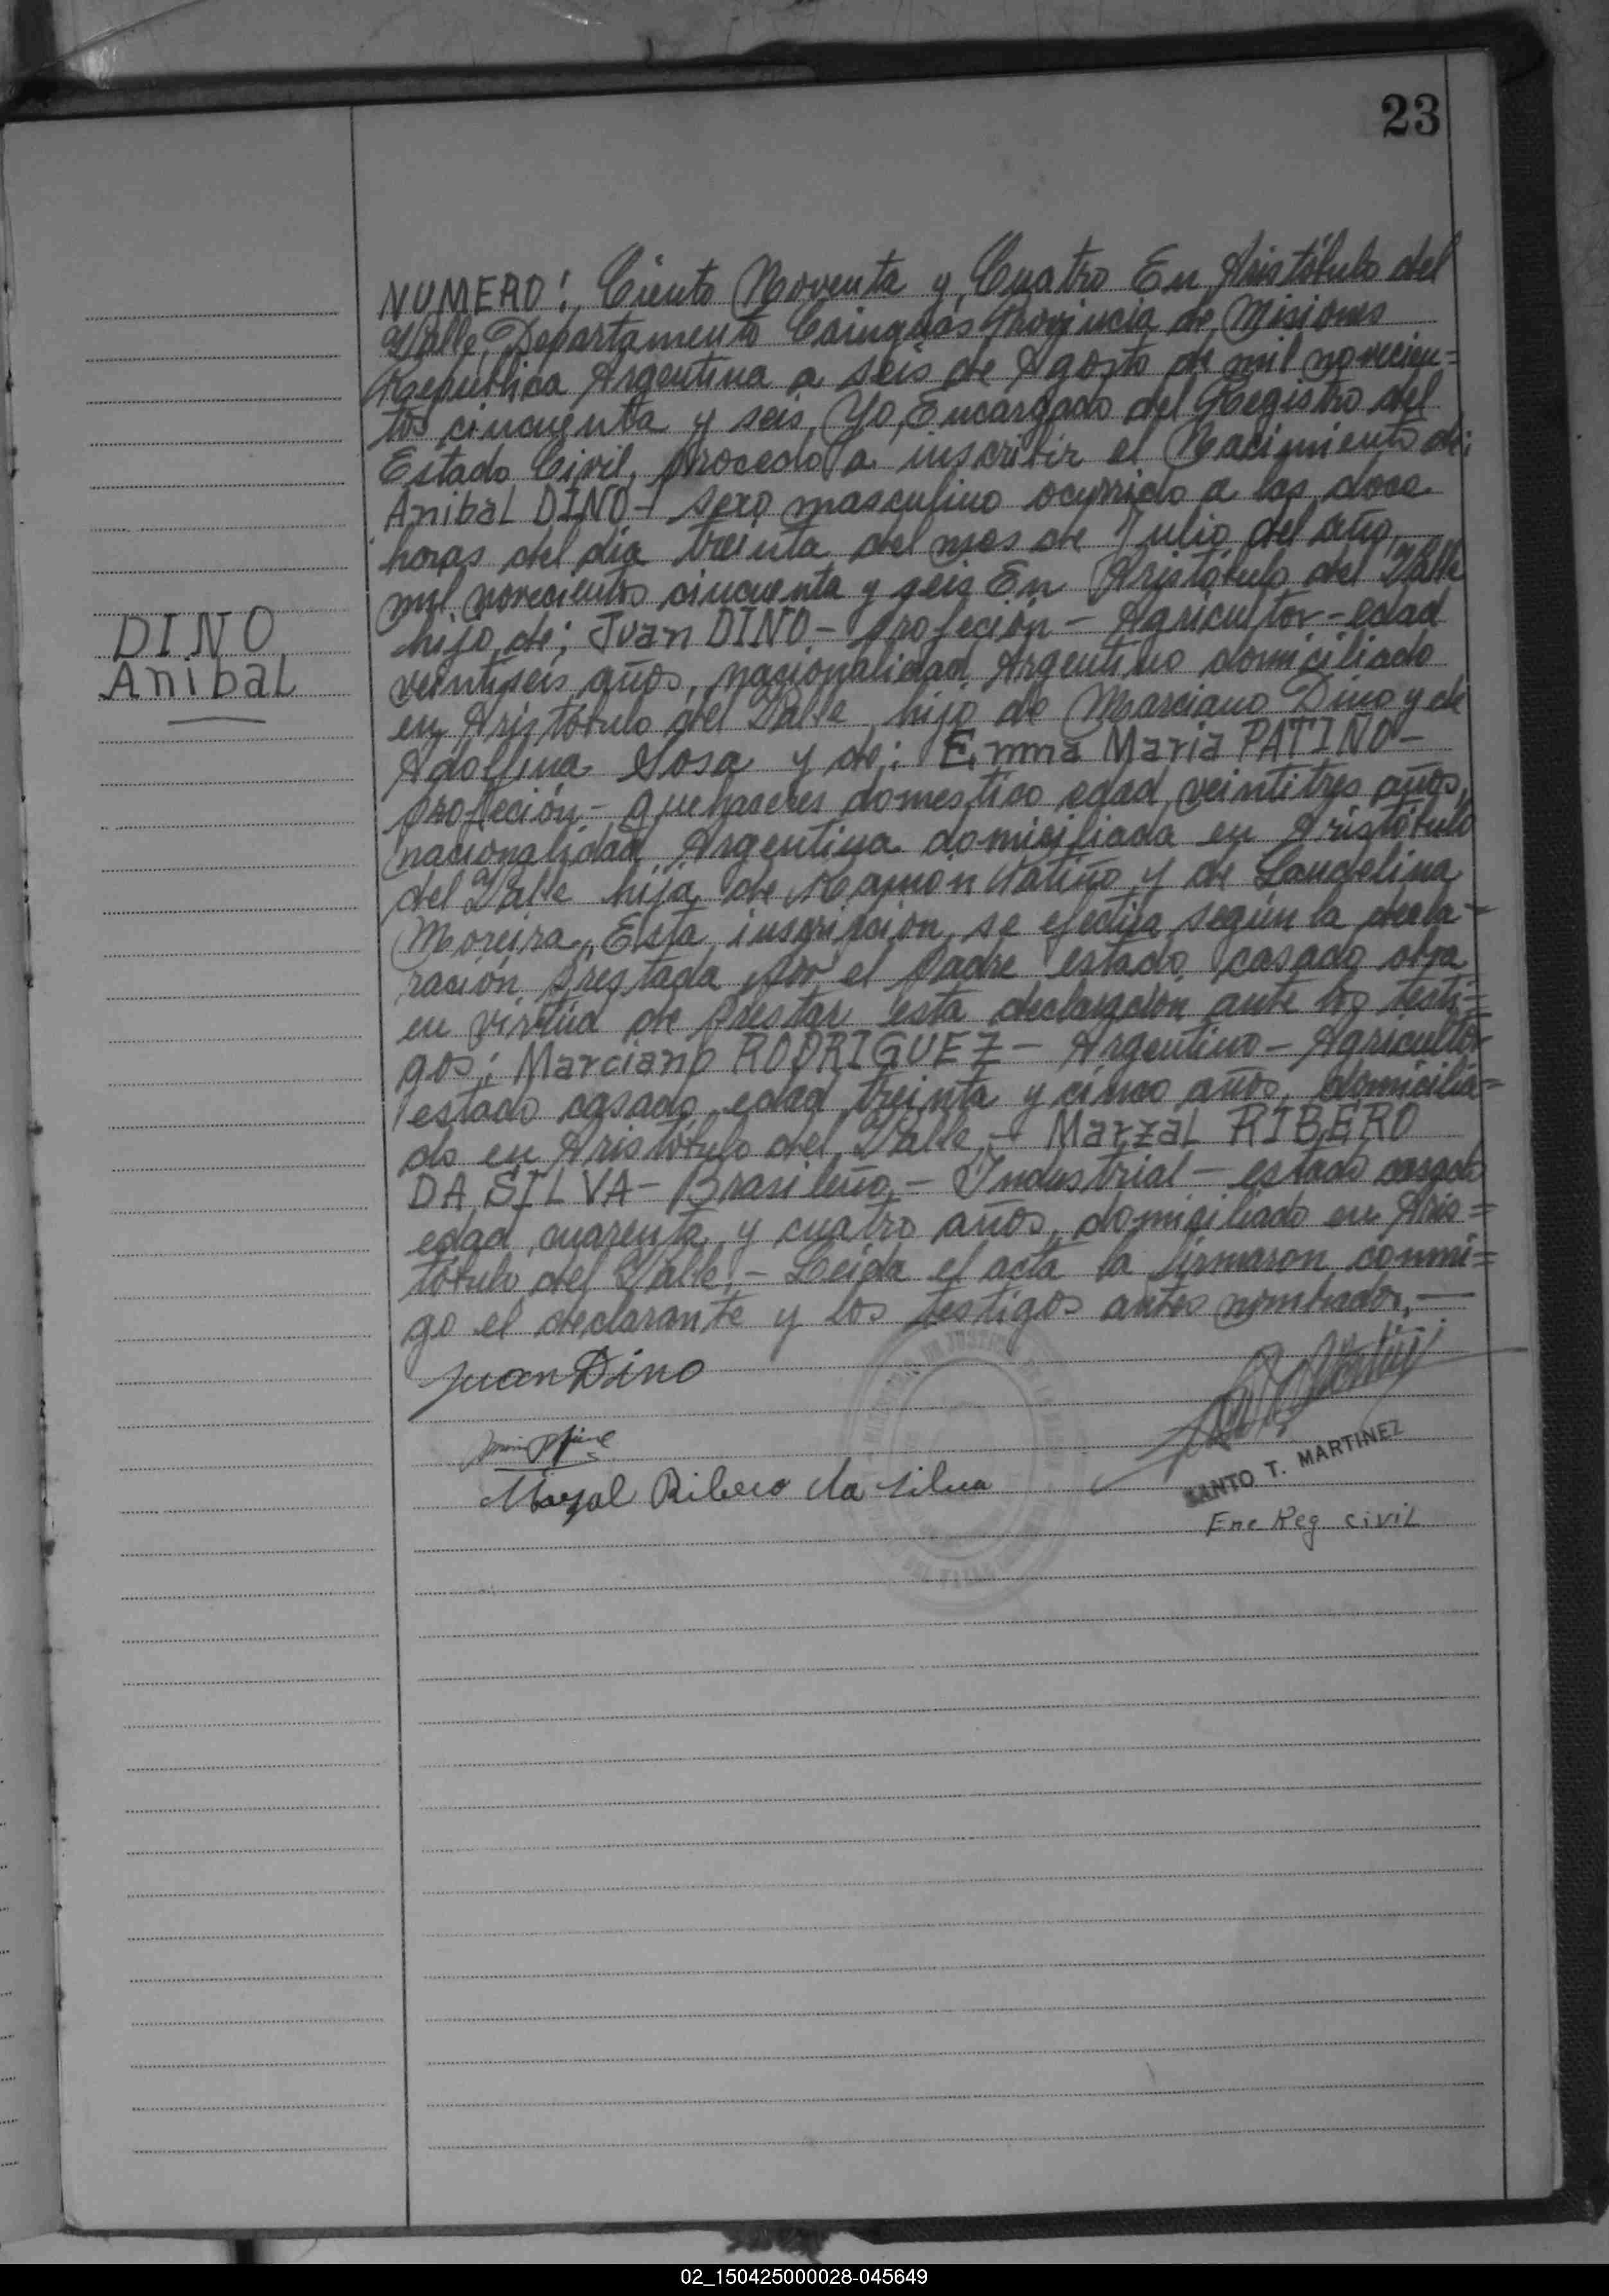 23
NUMERO: Ciento Noventa y Cuatro En Aristóbulo del
Valle, Departamento Cainguas Provincia de Misiones
Republica Argentina a seis de Agosto de mil novecien=
tos cincuenta y seis, Yo, Encargado del Registro del
Estado Civil, procedo a inscribir el Nacimiento de:
Anibal DINO - sexo masculino ocurrido a las doce
horas del dia treinta del mes de Julio del año
mil novecientos cincuenta y seis En Aristóbulo del Valle
DINO
Anibal
hijo de; Juan DINO - profeción - Agricultor - edad
veintiseis años, nacionalidad Argentino domiciliado
en Aristóbulo del Valle hijo de Marciano Dino y de
Adolfina Sosa y de: Emma Maria PATIÑO -
profeción - quehaceres domestico edad veintitres años,
nacionalidad Argentina domiciliada en Aristóbulo
del Valle hija de Ramón Patiño y de Laudelina
Moreira, Esta inscripción se efectúa según la decla-
ración prestada por el padre estado casado obra
en virtud de prestar esta declaración ante los testi=
gos: Marciano RODRIGUEZ - Argentino - Agricultor
estado casado edad treinta y cinco años, domicilia=
do en Aristóbulo del Valle, - Marzal RIBERO
DA SILVA - Brasileño, - Industrial - estado casado
edad cuarenta y cuatro años, domiciliado en Aris=
tóbulo del Valle, - Leida el acta la firmaron conmi=
go el declarante y los testigos antes nombrados, -
Juan Dino
Marzal Ribero da Silva
SANTO T. MARTINEZ
Enc Reg civil
02_150425000028-045649